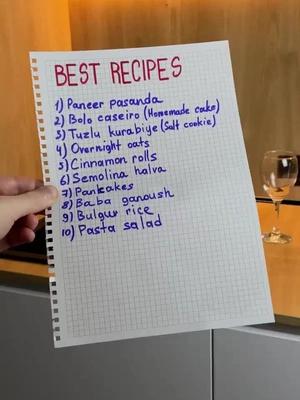 BEST RECIPES
1) Paneer pasanda
2) Bolo caseiro (Homemade cake)
3) Tuzlu kurabiye (Salt cookie)
4) Overnight oats
5) Cinnamon rolls
6) Semolina halva
7) Pankakes
8) Baba ganoush
9) Bulgur rice
10) Pasta salad